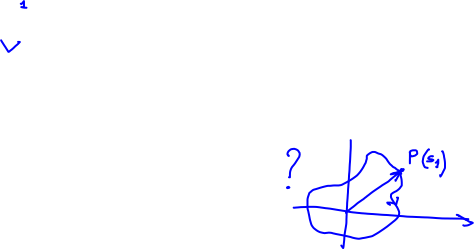 1
?
P(s₁)